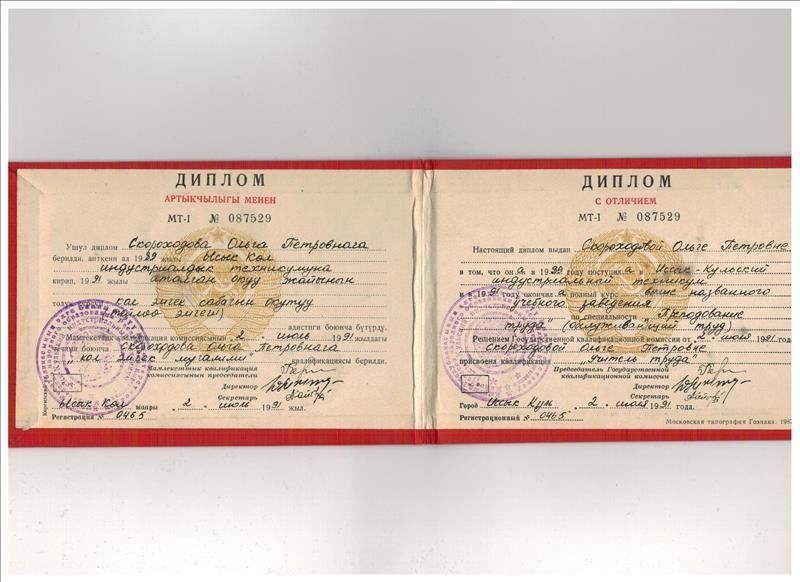 ДИПЛОМ
АРТЫКЧЫЛЫГЫ МЕНЕН
МТ-I № 087529
Ушул диплом Скороходова Ольга Петровнага
берилди, анткени ал 1989 жылы Ысык Көл
индустриалдык техникумуна
кирип, 1991 жылы аталган окуу жайынын
толук
кол эмгек сабагын окутуу
(тейлөө эмгеги)
адистиги боюнча бүтүрдү.
Мамлекеттик квалификация комиссиясынын 2 июль 1991 жылдагы
чечими боюнча Скороходова Ольга Петровнага
"кол эмгек мугалими" квалификациясы берилди.
Мамлекеттик квалификация
комиссиясынын председатели
Директор
Секретарь
Ысык Көл шаары 2 июль 1991 жыл.
Регистрация № 0465
ДИПЛОМ
С ОТЛИЧИЕМ
МТ-I № 087529
Настоящий диплом выдан Скороходовой Ольге Петровне
в том, что она в 1989 году поступила в Иссык-Кульский
индустриальный техникум
и в 1991 году окончила полный курс выше названного
учебного заведения
по специальности "Преподование
труда" (обслуживающий труд)
Решением Государственной квалификационной комиссии от 2 июля 1991 года
Скороходовой Ольге Петровне
присвоена квалификация "Учитель труда"
Председатель Государственной
квалификационной комиссии
Директор
Секретарь
Город Иссык Куль, 2 июля 1991 года.
Регистрационный № 0465
Московская типография Гознака.